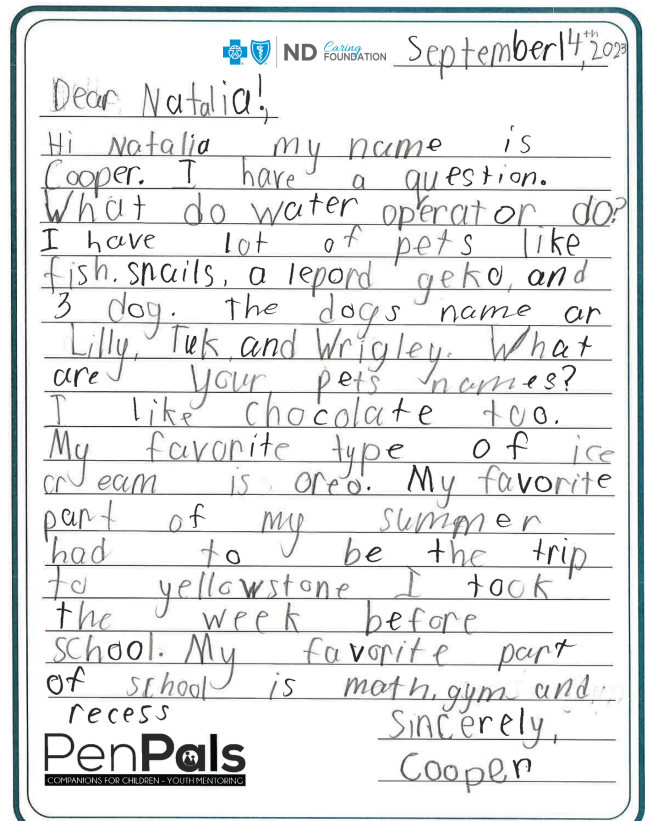 ND Caring FOUNDATION September 14,th 2023
Dear Natalia!,
Hi Natalia my name is
Cooper. I have a question.
What do water operator do?
I have lot of pets like
fish. snails, a lepord geko, and
3 dog. the dogs name ar
Lilly, Tuk, and Wrigley. What
are your pets names?
I like chocolate too.
My favorite type of ice
cream is oreo. My favorite
part of my summer
had to be the trip
to yellowstone I took
the week before
school. My favorite part
of school is math, gym and
recess
Sincerely,
Cooper
PenPals
COMPANIONS FOR CHILDREN - YOUTH MENTORING